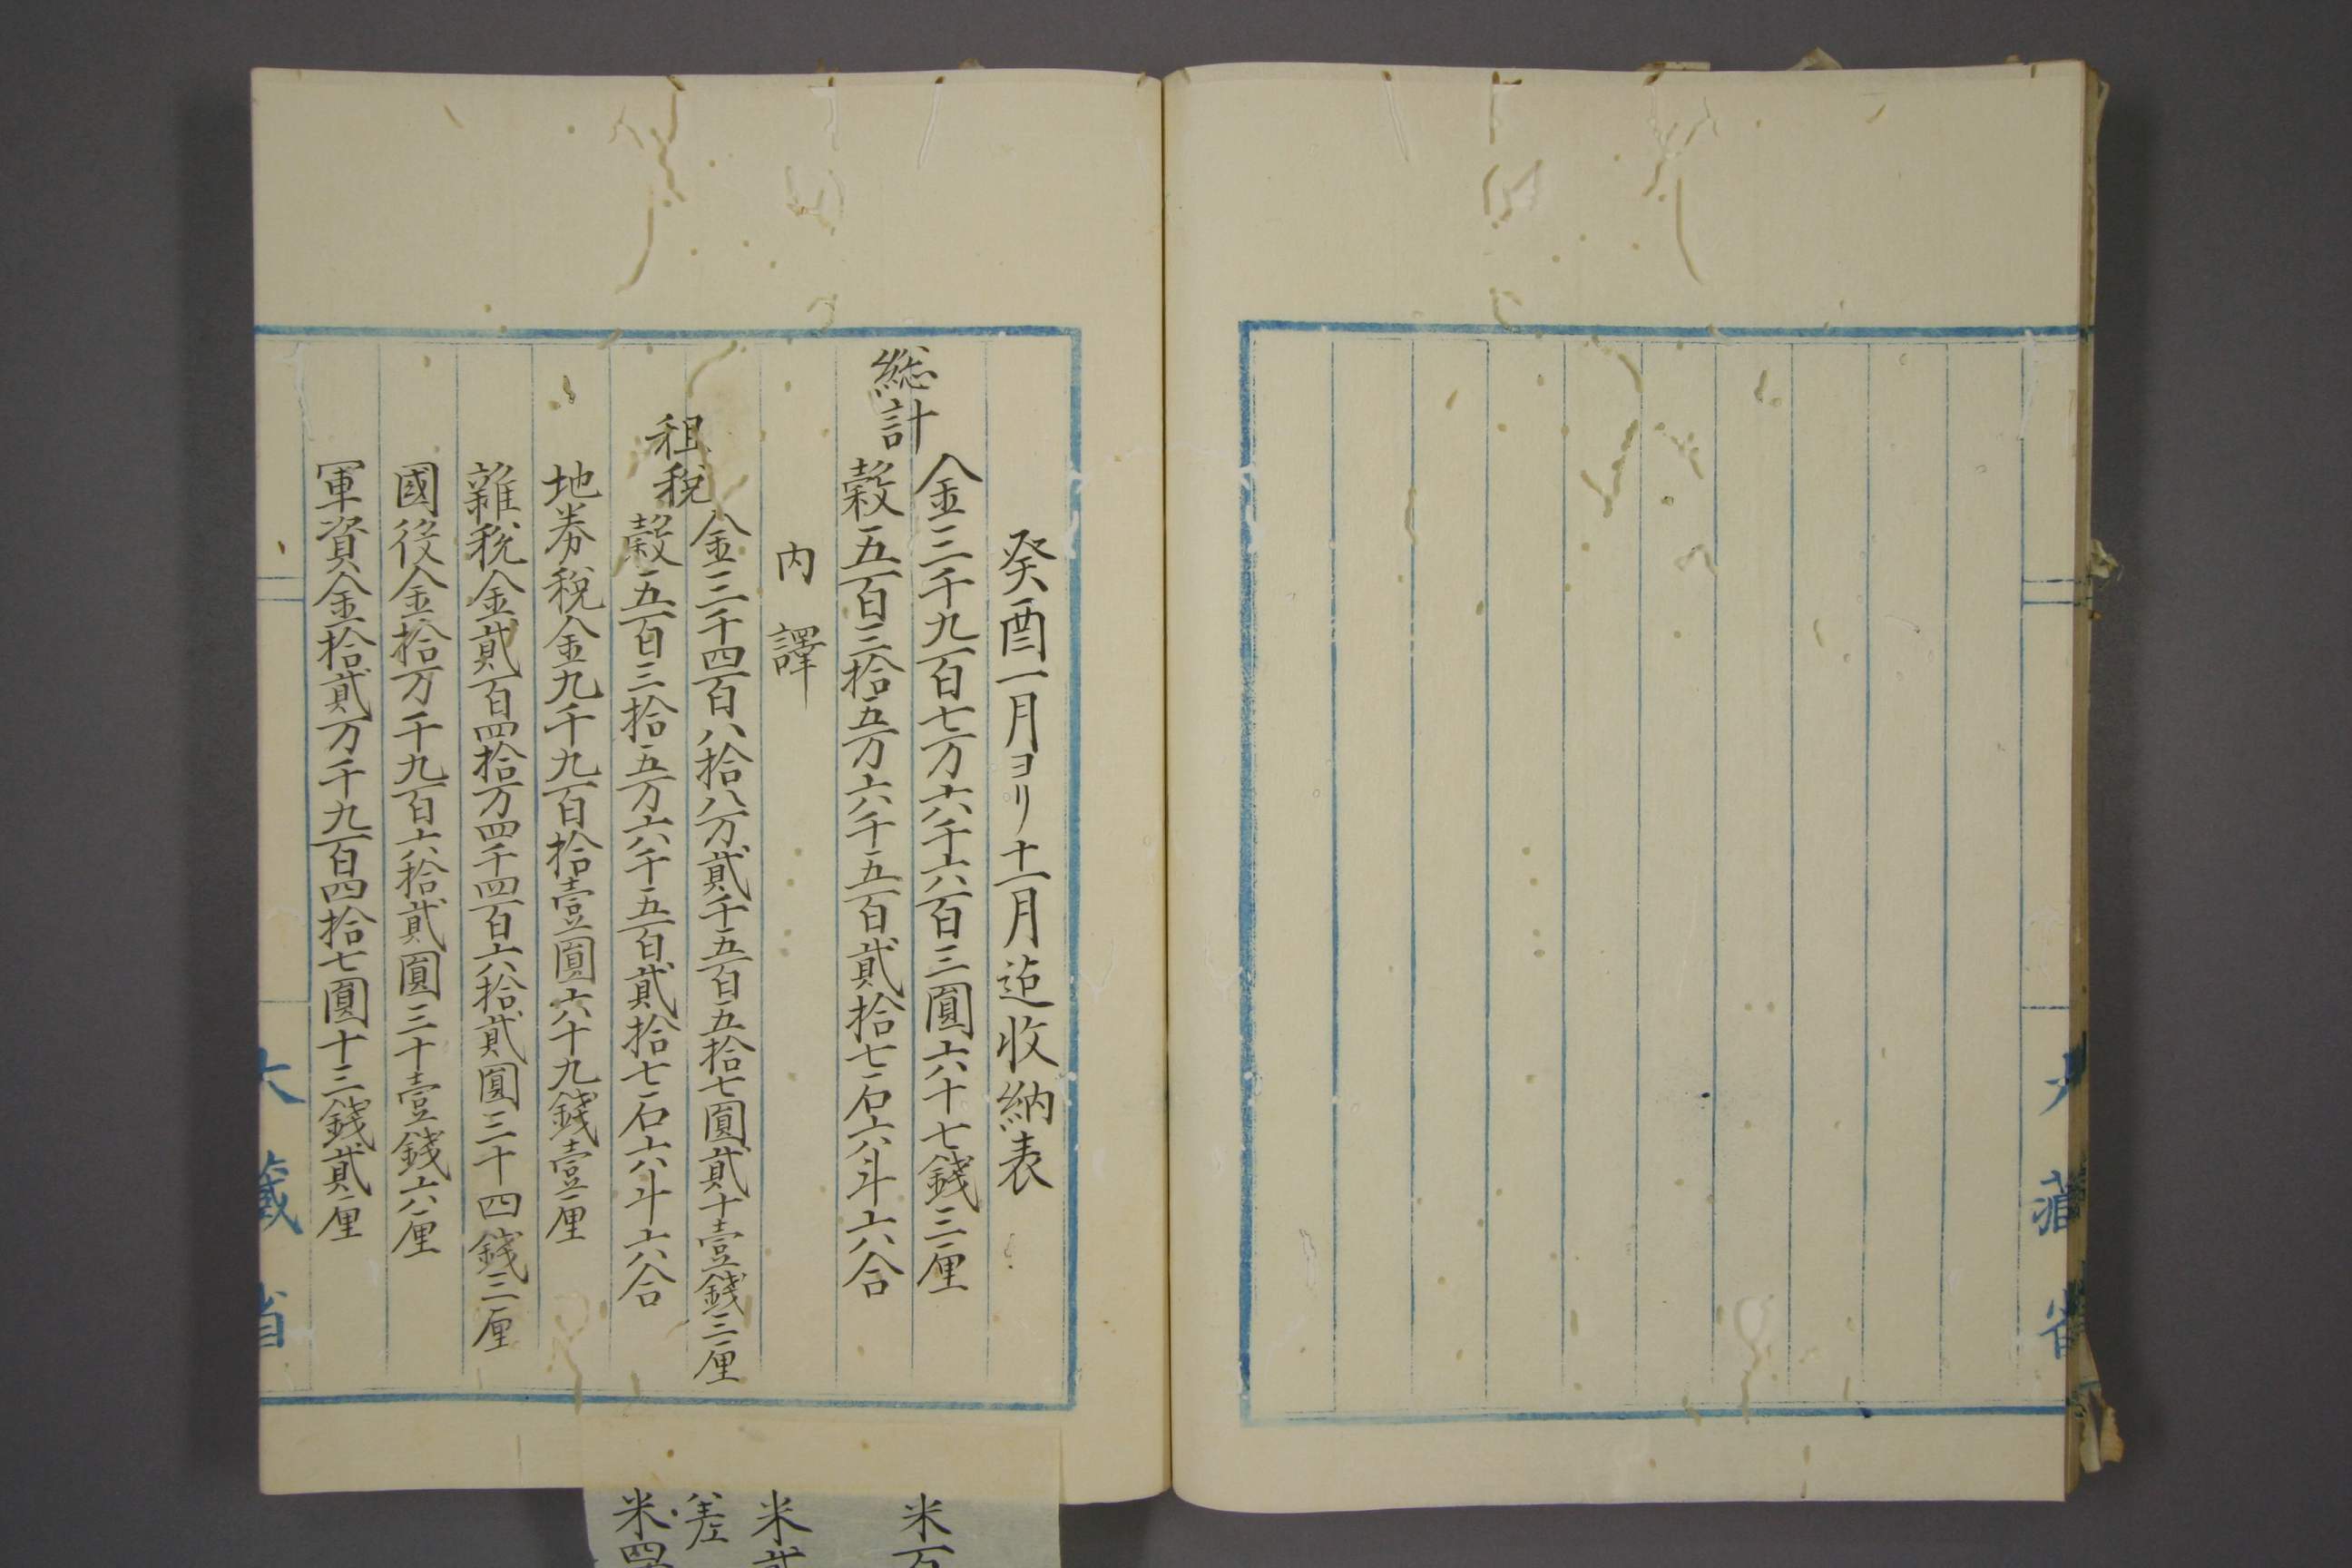 大藏省
癸酉一月ヨリ十一月迄收納表
総計
金三千九百七万六千六百三圓六十七錢三厘
穀五百三拾五万六千五百貳拾七石六斗六合
内譯
租税
金三千四百八拾八万貳千五百五拾七圓貳十壹錢三厘
穀五百三拾五万六千五百貳拾七石六斗六合
地券税金九千九百拾壹圓六十九錢壹厘
雜税金貳百四拾万四千四百六拾貳圓三十四錢三厘
國役金拾万千九百六拾貳圓三十壹錢六厘
軍資金拾貳万千九百四拾七圓十三錢貳厘
大藏省
米
米
差
米四